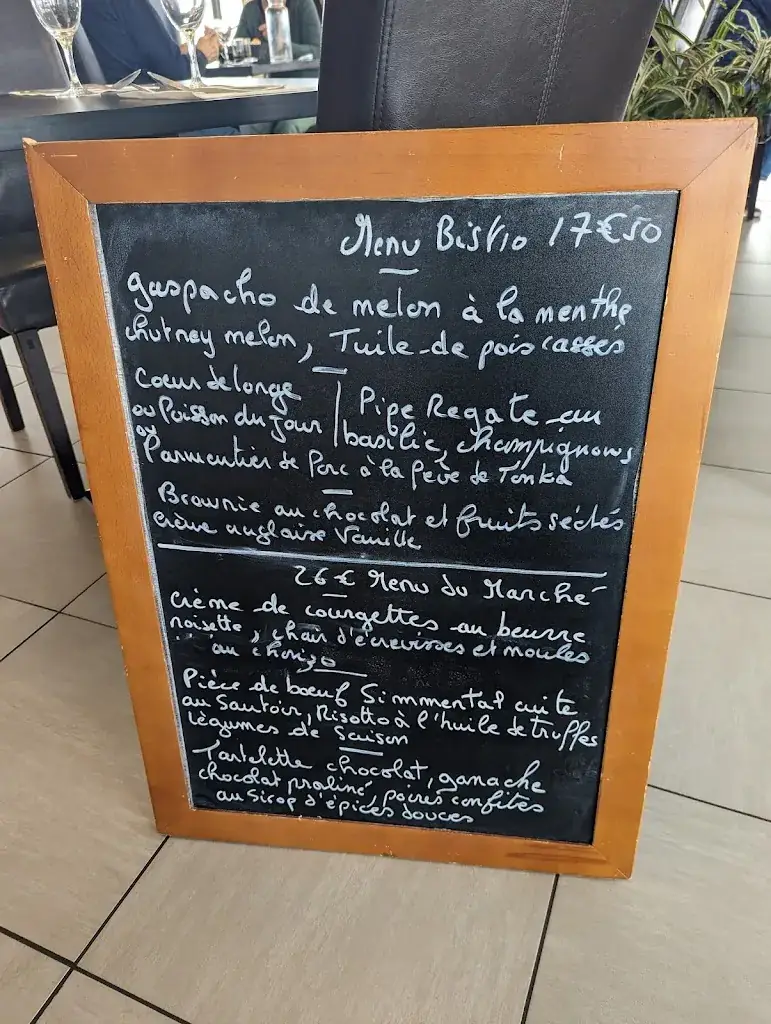 Menu Bistro 17€50
gaspacho de melon à la menthe
chutney melon, Tuile de pois cassés
Cœur de longe
ou Poisson du jour
Pipe Regate au
basilic, champignons
ou
Parmentier de Porc à la fève de Tonka
Brownie au chocolat et fruits séchés
crème anglaise Vanille
26€ Menu du Marché
Crème de courgettes au beurre
noisette, chair d'écrevisses et moules
au chorizo
Pièce de bœuf Simmental cuite
au Sautoir, Risotto à l'huile de truffes
Légumes de Saison
Tartelette chocolat, ganache
chocolat praliné, poires confites
au Sirop d'épices douces